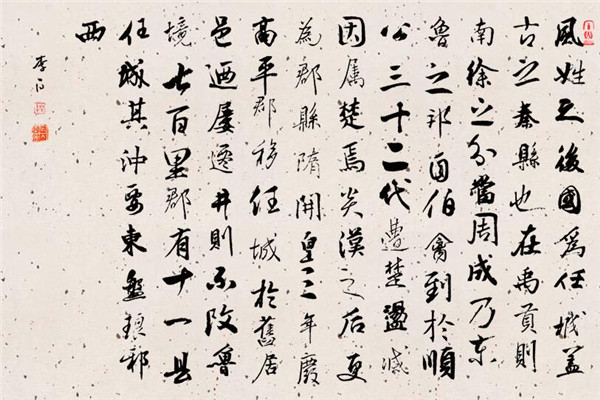 風姓之後國爲任城蓋
古之秦縣也在禹貢則
南徐之分當周成乃東
魯之邦自伯禽到於順
公三十二代遭楚盪滅
因屬楚焉炎漢之后更
為郡縣隋開皇三年廢
高平郡移任城於舊居
邑迺屢遷井則不改魯
境七百里郡有十一县
任城其沖要東盤琅邪
西